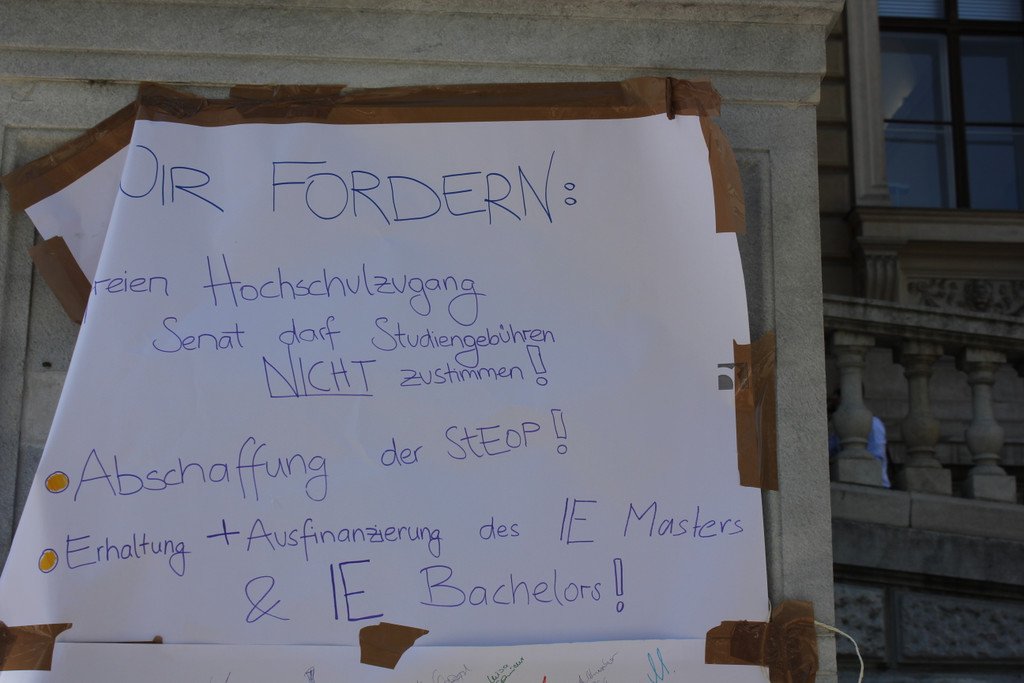 WIR FORDERN:
freien Hochschulzugang
Senat darf Studiengebühren
NICHT zustimmen!
Abschaffung der StEOP!
Erhaltung + Ausfinanzierung des IE Masters
& IE Bachelors!